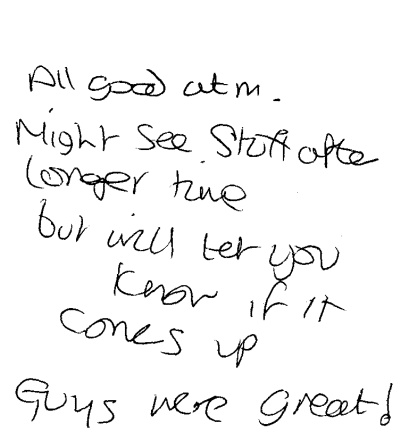 All good atm.
Might see stuff after
longer time
but will let you
know if it
comes up
Guys were great!